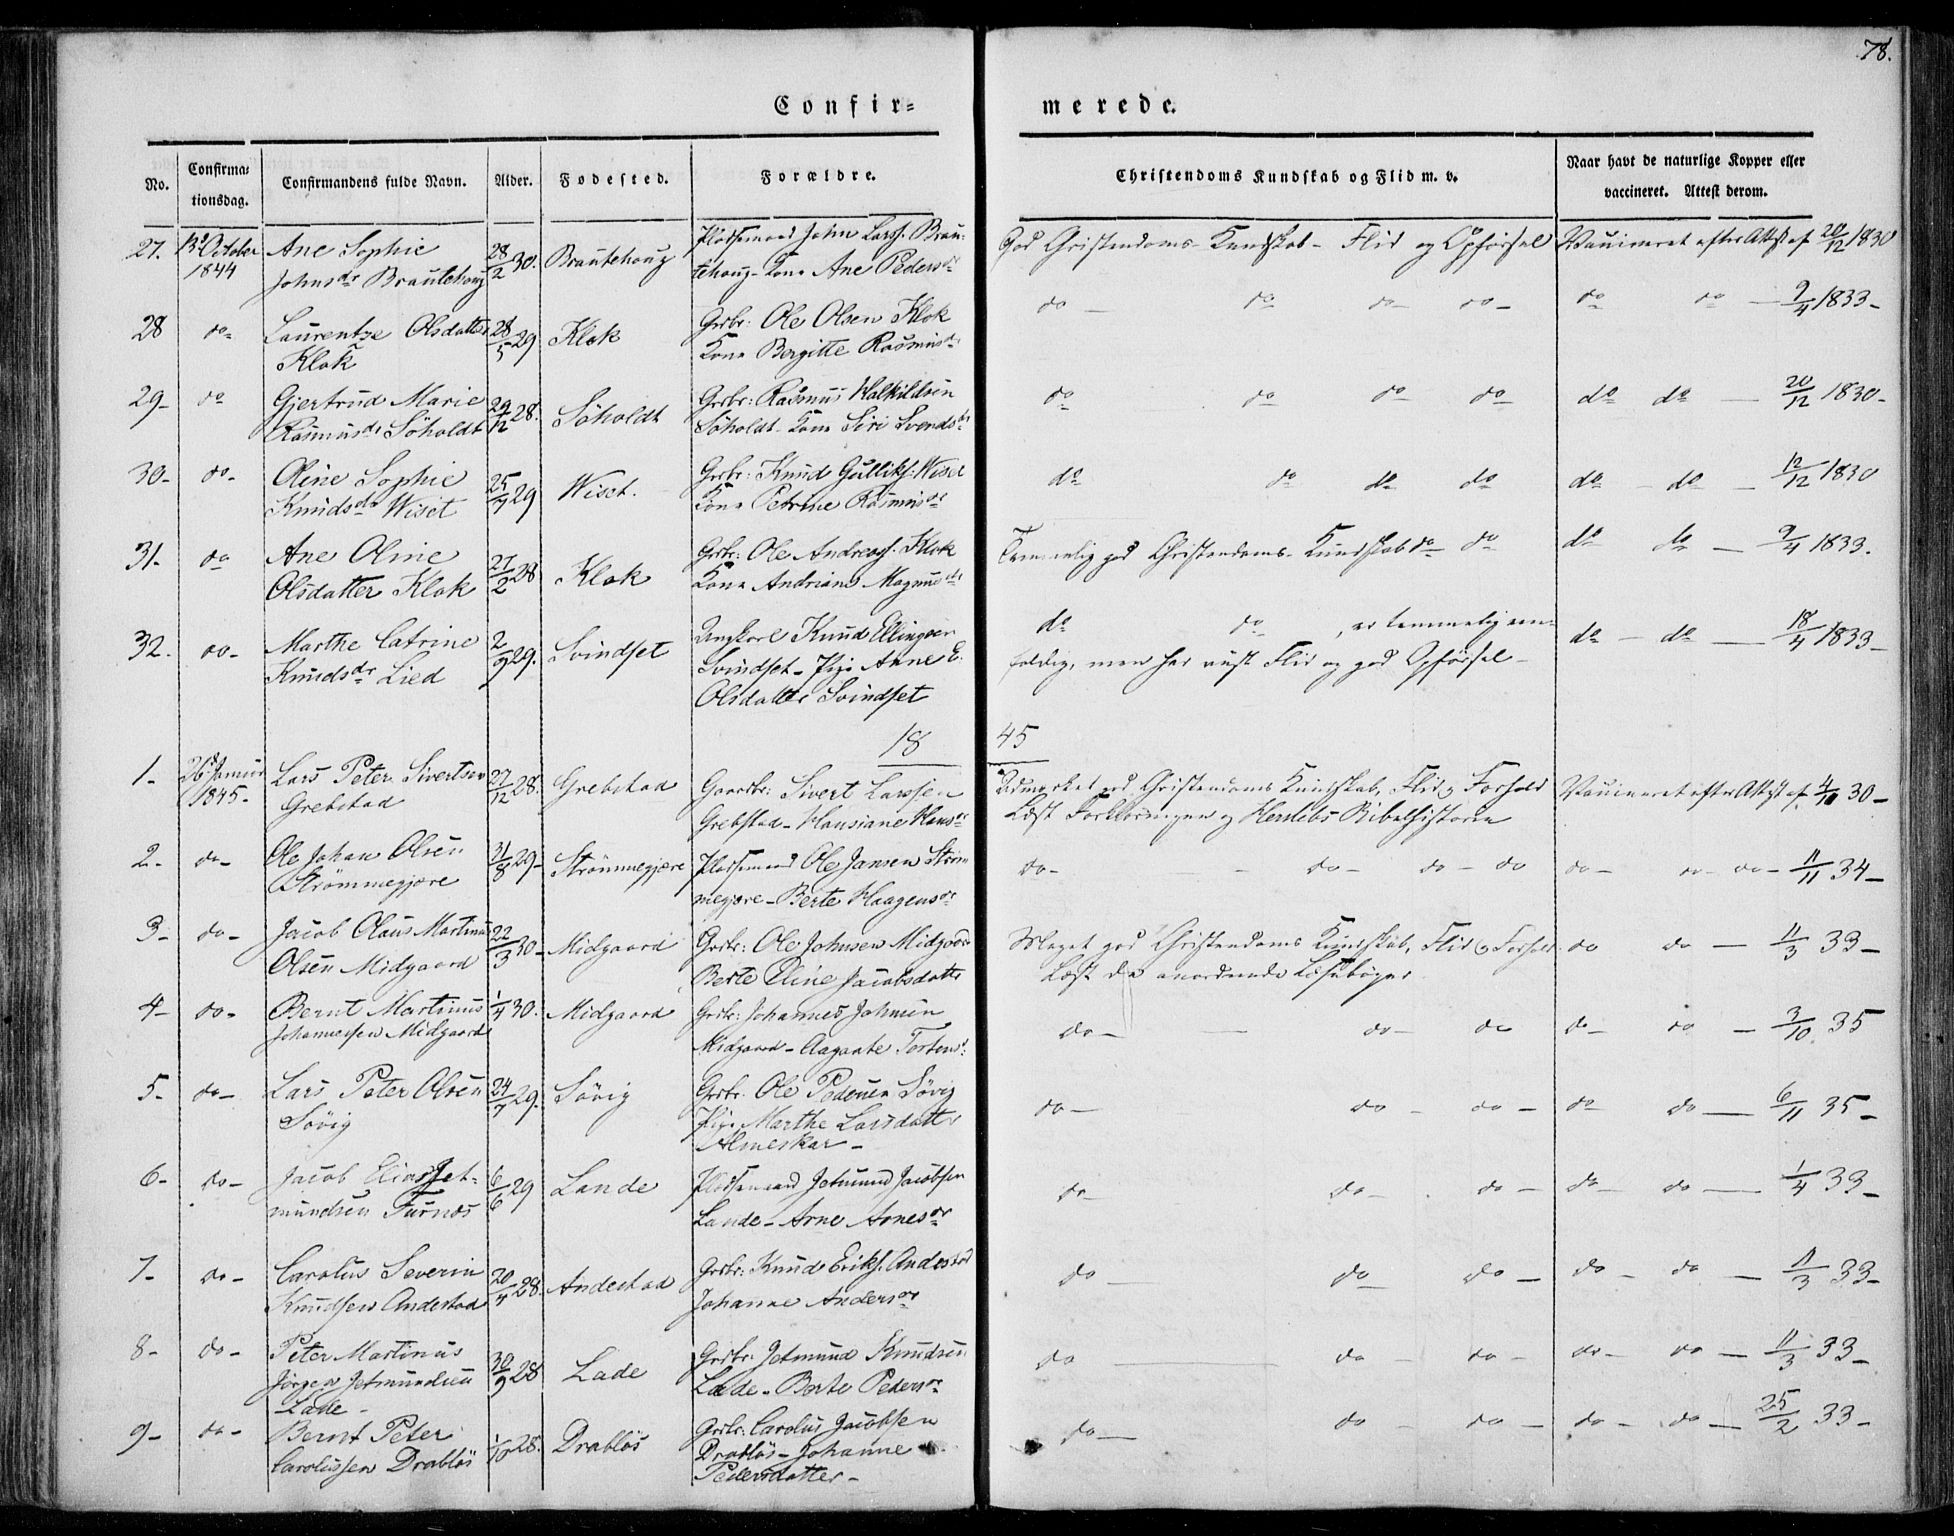 78.
Confir=
merede.
No.
Confirma=
tionsdag.
Confirmandens fulde Navn.
Alder.
Fødested.
Forældre.
Christendoms Kundskab og Flid m. v.
Naar havt de naturlige Kopper eller
vaccineret. Attest derom.
27. 13d October 1844
Ane Sophie
Johnsdr Brautehoug
28/2 30.
Brautehoug
Pladsemand John Larss. Brau-
tehoug - Kone Ane Pedersdr
God Christendoms-Kundskab - Flid og Opførsel
Vaccineret efter Attest af 20/12 1830
28 do
Laurentze Olsdatter
Klok
28/5 29
Klok
Grbr: Ole Olsen Klok
Kone Bergitte Rasmusdr
do - do do do -
do do - 9/4 1833 -
29 - do
Gjertrud Marie
Rasmusdr Söholdt
29/12 28.
Söholdt
Grbr: Rasmus Walkildsen
Söholdt - Kone Siri Svendsdr
do do do do
do do - 20/12 1830 -
30 - do -
Oline Sophie
Knudsdr Wiset
25/7 29
Wiset.
Grbr: Knud Gulliks. Wiset
Kone Petrine Rasmusdr
do do do do
do - do - 12/12 1830
31 - do
Ane Oline
Olsdatter Klok
27/2 28
Klok
Grbr: Ole Andreass. Klok
Kone Andriane Magnusdr
Temmelig god Christendoms-Kundskab do do
do do - 9/4 1833.
32. do -
Marthe Catrine
Knudsdr Lied
2/9 29.
Svindset
Ungkarl Knud Ellingsen
Svindset - Pige Anne E.
Olsdatter Svindset
do do, er temmelig een-
foldig, men har viist Flid og god Opførsel -
do - do - 18/4 1833 -
18
45
1 - 26d Januar 1845 -
Lars Peter Sivertsen
Grebstad
27/12 28.
Grebstad
Gaardbr: Sivert Larssen
Grebstad - Hansiane Hansdr
Udmærket god Christendoms Kundskab, Flid og Forhold
Læst Forklaringen og Herslebs Bibelhistorie
Vaccineret efter Attest af 4/10 30 -
2 - do -
Ole Johan Olsen
Strömmegjære
31/8 29 -
Strömmegjære
Pladsemand Ole Jansen Ström
megjære - Berte Haagensdr
do - - do - do - do
do - do - do - 11/11 34 -
3 - do -
Jacob Olaus Martinus
Olsen Midgaard
22/3 30 -
Midgaard
Grbr: Ole Johnsen Midgaard
Berte Eline Jacobsdatter
Meget god Christendoms Kundskab, Flid og Forhold.
Læst de anordnede Læsebøger
do do - 11/3 33 -
4 - do -
Bernt Martinus
Johannessen Midgaard
1/4 30.
Midgaard
Grbr: Johannes Johnsen
Midgaard - Aagaate
do - - do - do
do - do - 3/10 35
5 - do -
Lars Peter Olsen
Sövig
24/7 29.
Sövig
Grbr. Ole Pedersen Sövig
Pige Marthe Larsdatter
Almeskar -
do - do - do -
do do - 6/11 35 -
6 - do -
Jacob Elias Jet-
mundsen Furnes
6/6 29
Lande
Pladsemand Jetmund Jacobsen
Lande - Arne Arnesdr
do - do - do -
do - do - 1/4 33 -
7 - do -
Carolus Severin
Knudsen Andestad
20/4 28.
Andestad
Grbr: Knud Eriks. Andestad
Johanne Andersdr
do - do - do -
do - do - 11/3 33 -
8 - do -
Peter Martinus
Jørgen Jetmundsen
Lade -
30/9 28
Lade
Grbr. Jetmund Knudsen
Lade - Berte Pedersdr
do - do - do -
do - do - 11/3 33 -
9 - do -
Bernt Peter
Carolussen Drabløs
1/10 28.
Drabløs
Grbr: Carolus Jacobsen
Drabløs - Johanne
Pedersdatter -
do - do - do -
do - do - 25/2 33 -